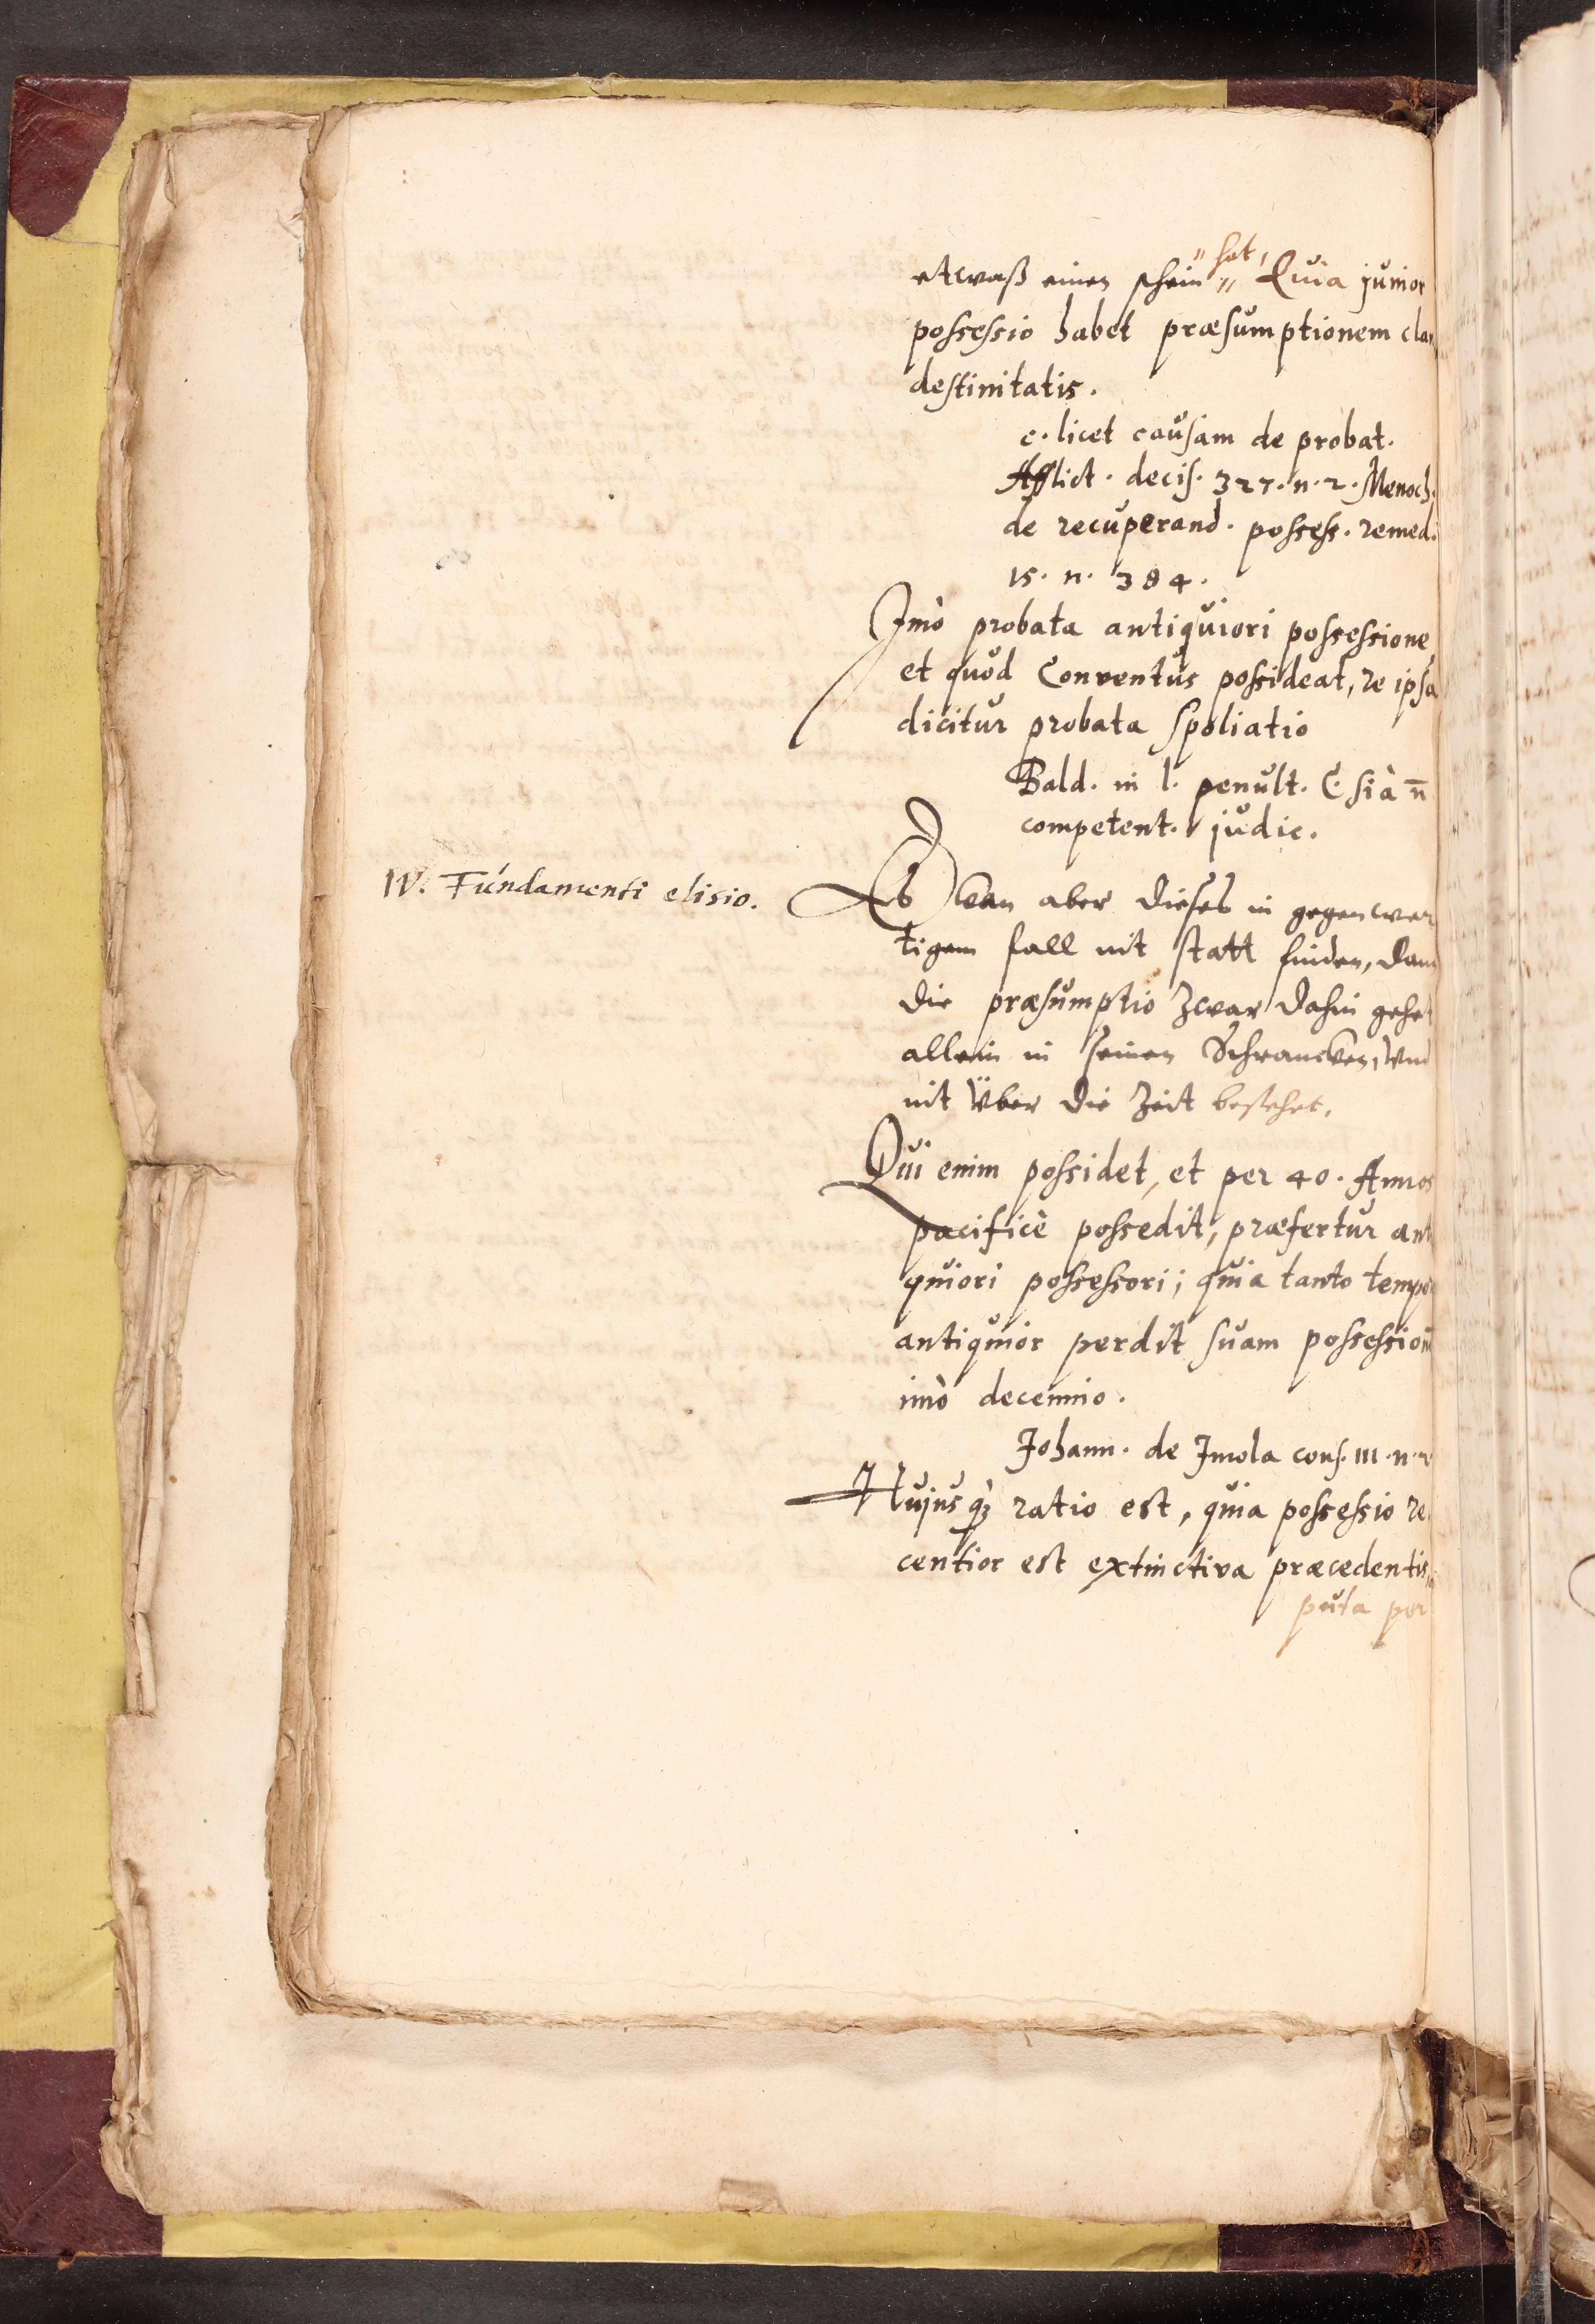 etwaß einen schein "hat, Quia junior
possessio habet præsumptionem clan
destinitatis.
c. licet causam de probat.
Afflict. decis. 327. n. 2. Menoch.
de recuperand. possess. remed.
15. n. 384.
Imò probata antiquiori possessione
et quòd Conventus possideat, re ipsa
dicitur probata spoliatio
Bald. in l. penult. C. si à n̄
competent. judic.
IV. Fundamenti elisio.
Es kan aber dieses in gegenwer
tigem fall nit statt finden, dann
die præsumptio zwar dahin gehet
allein in seinen Schrancken, vnd
nit über die Zeit bestehet,
Qui enim possidet, et per 40. Annos
pacificè possedit, præfertur anti
quiori possessori; quia tanto tempore
antiquior perdit suam possession
imò decennio.
Johann. de Imola cons. 111. n. 2
Hujus q̀ꝫ ratio est, quia possessio re
centior est extinctiva præcedentis,
puta per